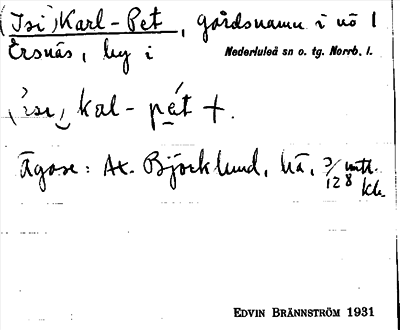 (Isi) Karl-Pet, gårdsnamn i nö 1
Ersnäs, by i Nederluleå sn o. tg. Norrb. l.
kal - pét +.
Ägare: Ax. Björklund, hä, 3/128 mtl.
EDVIN BRÄNNSTRÖM 1931